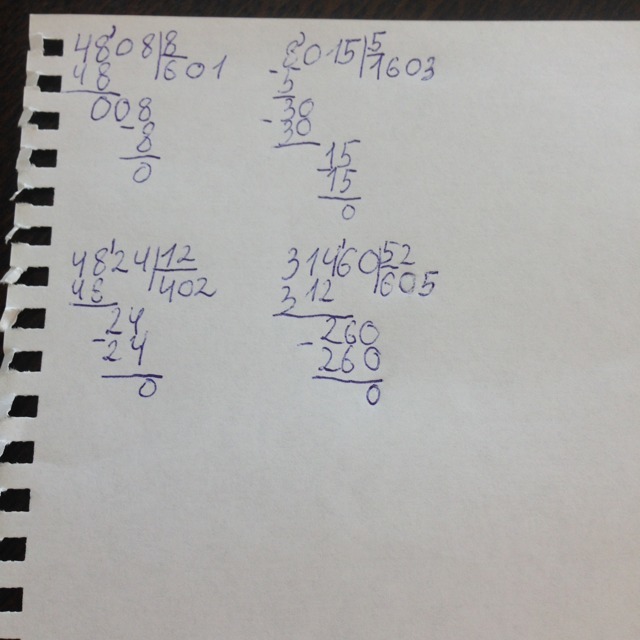 4808 8
48 601
008
-8
0
8015 5
-5 1603
30
-30
15
15
0
4824 12
48 402
24
-24
0
31460 52
312 605
260
-260
0